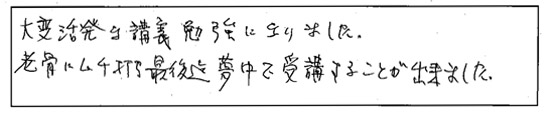 大変活発な講義 勉強になりました。
老骨にムチ打ち最後迄夢中で受講することが出来ました。